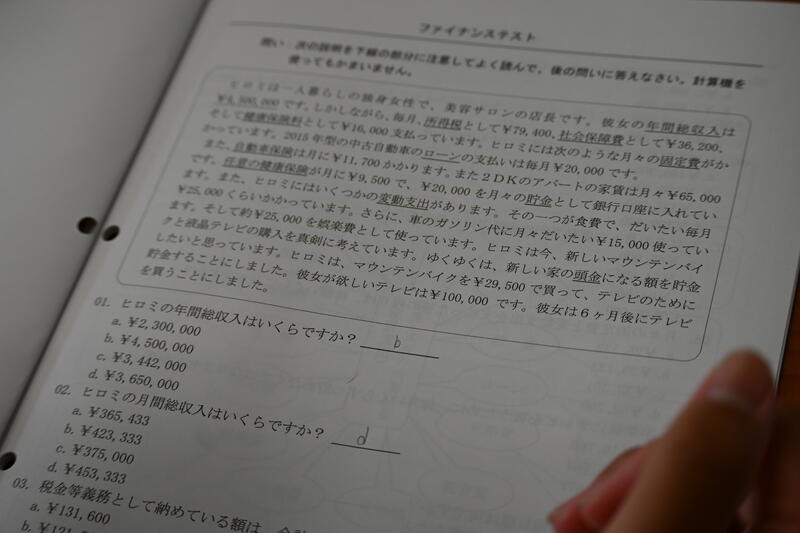 ファイナンステスト
問い：次の説明を下線の部分に注意してよく読んで，後の問いに答えなさい。計算機を
使ってもかまいません。
ヒロミは一人暮らしの独身女性で，美容サロンの店長です。彼女の年間総収入は
¥4,500,000です。しかしながら，毎月，所得税として¥79,400，社会保障費として¥36,200，
そして健康保険料として¥16,000支払っています。ヒロミには次のような月々の固定費がか
かっています。2015年型の中古自動車のローンの支払いは毎月¥20,000です。
また，自動車保険は月に¥11,700かかります。また２DKのアパートの家賃は月々¥65,000
です。任意の健康保険が月に¥9,500で，¥20,000を月々の貯金として銀行口座に入れてい
ます。また，ヒロミにはいくつかの変動支出があります。その一つが食費で，だいたい毎月
¥25,000くらいかかっています。さらに，車のガソリン代に月々だいたい¥15,000使ってい
ます。そして約¥25,000を娯楽費として使っています。ヒロミは今，新しいマウンテンバイ
クと液晶テレビの購入を真剣に考えています。ゆくゆくは，新しい家の頭金になる額を貯金
したいと思っています。ヒロミは，マウンテンバイクを¥29,500で買って，テレビのために
貯金することにしました。彼女が欲しいテレビは¥100,000です。彼女は６ヶ月後にテレビ
を買うことにしました。
01. ヒロミの年間総収入はいくらですか？ b
a. ¥2,300,000
b. ¥4,500,000
c. ¥3,442,000
d. ¥3,650,000
02. ヒロミの月間総収入はいくらですか？ d
a. ¥365,433
b. ¥423,333
c. ¥375,000
d. ¥453,333
03. 税金等義務として納めている額は，合計
a. ¥131,600
b.